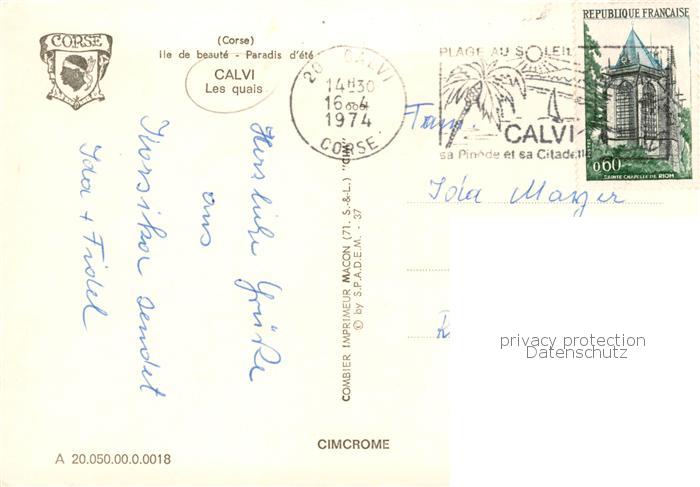 CORSE
(Corse)
Ile de beauté - Paradis d'été
CALVI
Les quais
Herzliche Grüße
aus
Korsika sendet
Ida + Fidel
A 20.050.00.0.0018
COMBIER IMPRIMEUR MACON (71. S.-&-L.) "CIM"
© by S.P.A.D.E.M. - 37
CIMCROME
20 CALVI
14H30
16 - 4
1974
CORSE
PLAGE AU SOLEIL
CALVI
sa Pinède et sa Citadelle
REPUBLIQUE FRANCAISE
0,60
SAINTE CHAPELLE DE RIOM
Fam.
Ida
privacy protection
Datenschutz